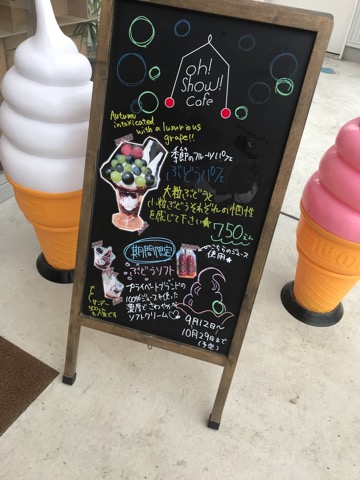 oh!
Show!
Cafe
Autumn
intoxicated
with a luxurious
grape!!
季節のフルーツパフェ
ぶどうパフェ
大粒ぶどうと
小粒ぶどうそれぞれの個性
を感じて下さい★
750
期間限定
こちらのジュース
使用★
ぶどうソフト
プライベートブランドの
100%ジュースを使った
濃厚でさわやかな
ソフトクリーム
9月12日〜
10月29日まで
(予定)